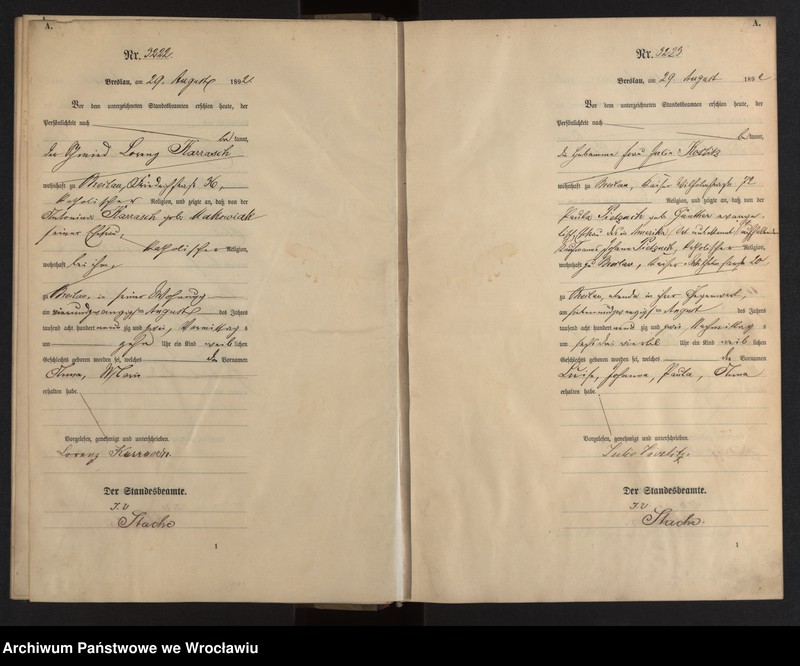 A.
Nr. 3222.
Breslau, am 29. August 1892.
Vor dem unterzeichneten Standesbeamten erschien heute, der
Persönlichkeit nach
bekannt,
der Schmied Lorenz Karrasch
wohnhaft zu Breslau, Friedrichstraße 36,
katholischer Religion, und zeigte an, daß von der
Antonina Karrasch geb. Makowiak
seiner Ehefrau,
katholischer Religion,
wohnhaft bei ihm,
zu Breslau, in seiner Wohnung
am vierundzwanzigsten August des Jahres
tausend acht hundert neunzig und zwei, Vormittags
um zehn Uhr ein Kind weiblichen
Geschlechts geboren worden sei, welches die Vornamen
Anna, Marie
erhalten habe.
Vorgelesen, genehmigt und unterschrieben.
Lorenz Karrasch.
Der Standesbeamte.
I. V
Stache
1
A.
Nr. 3223
Breslau, am 29. August 1892
Vor dem unterzeichneten Standesbeamten erschien heute, der
Persönlichkeit nach
bekannt,
die Hebamme Frau
wohnhaft zu Breslau, Kaiser Wilhelmstraße 72
Religion, und zeigte an, daß von der
Paula Pietzsch geb. Günther evange-
lisch, Ehefrau des in Amerika
Kaufmanns Johann katholischer Religion,
wohnhaft zu Breslau, Kaiser Wilhelmstraße 20
zu Breslau, in ihrer Gegenwart,
am siebenundzwanzigsten August des Jahres
tausend acht hundert neunzig und zwei Nachmittags
um sechs drei viertel Uhr ein Kind weiblichen
Geschlechts geboren worden sei, welches die Vornamen
Luise, Johanna, Paula, Anna
erhalten habe.
Vorgelesen, genehmigt und unterschrieben.
Der Standesbeamte.
I. V
Stache.
1
Archiwum Państwowe we Wrocławiu